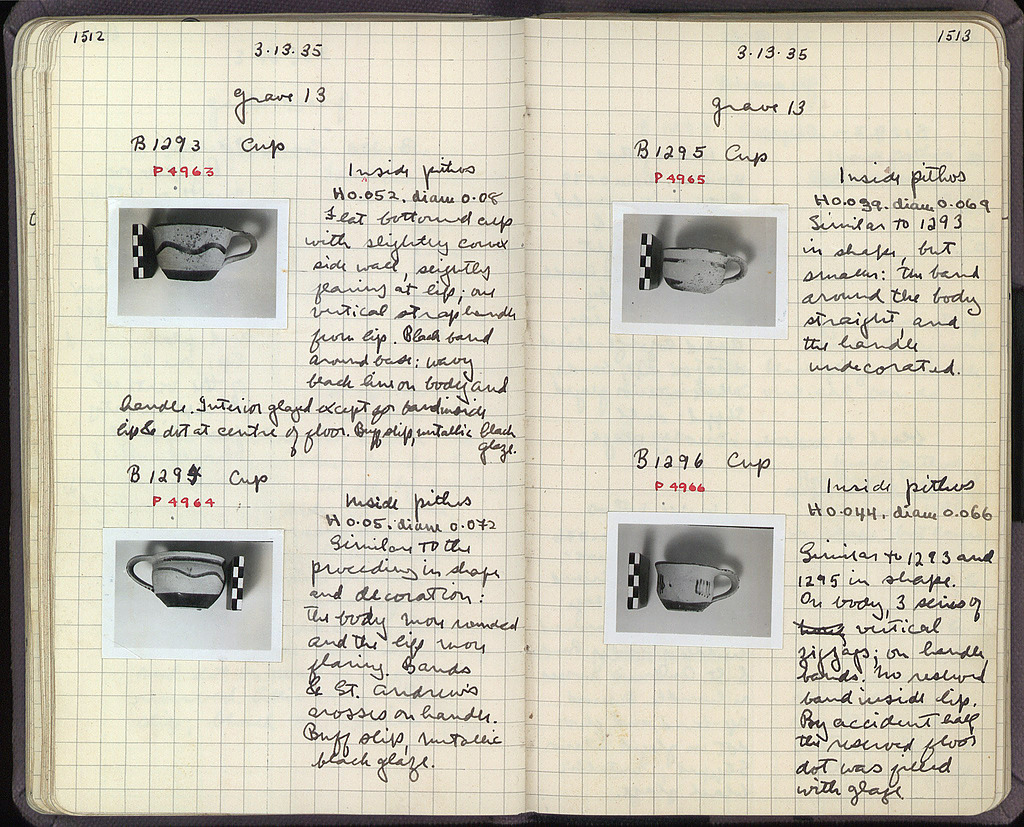 1512
3·13·35
grave 13
B 1293 Cup
P 4963
Inside pithos
H 0.052. diam 0.08
Flat bottomed cup
with slightly convex
side wall, slightly
flaring at lip; one
vertical strap handle
from lip. Black band
around base; wavy
black line on body and
handle. Interior glazed except for band inside
lip & dot at centre of floor. Buff slip, metallic black
glaze.
B 1294 Cup
P 4964
Inside pithos
H 0.05. diam 0.072
Similar to the
preceding in shape
and decoration:
the body more rounded
and the lip more
flaring. Bands
& St. Andrew's
crosses on handle.
Buff slip, metallic
black glaze.
t
1513
3·13·35
grave 13
B 1295 Cup
P 4965
Inside pithos
H 0.039. diam 0.069
Similar to 1293
in shape, but
smaller: the band
around the body
straight, and
the handle
undecorated.
B 1296 Cup
P 4966
Inside pithos
H 0.044. diam 0.066
Similar to 1293 and
1295 in shape.
On body, 3 series of
vertical
zigzags; on handle,
bands. No reserved
band inside lip.
By accident half
the reserved floor
dot was filled
with glaze